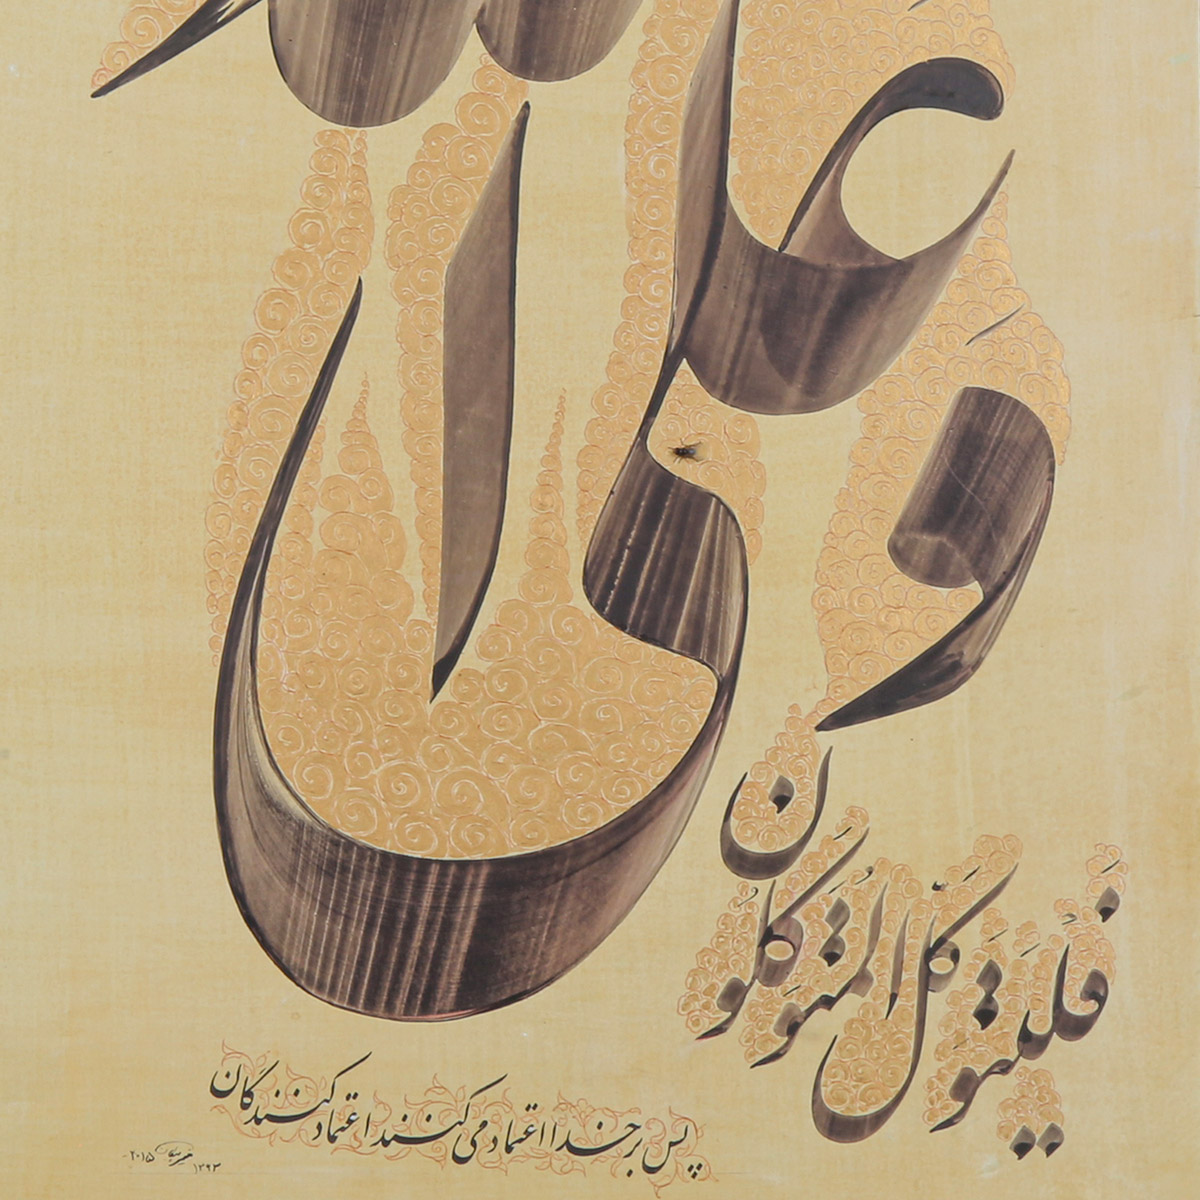 وعلى الله
فَليَتَوَكَّل المُتَوَكِّلُون
پس بر خدا اعتماد می کنند اعتماد کنندگان
۱۳۹۳ ۲۰۱۵